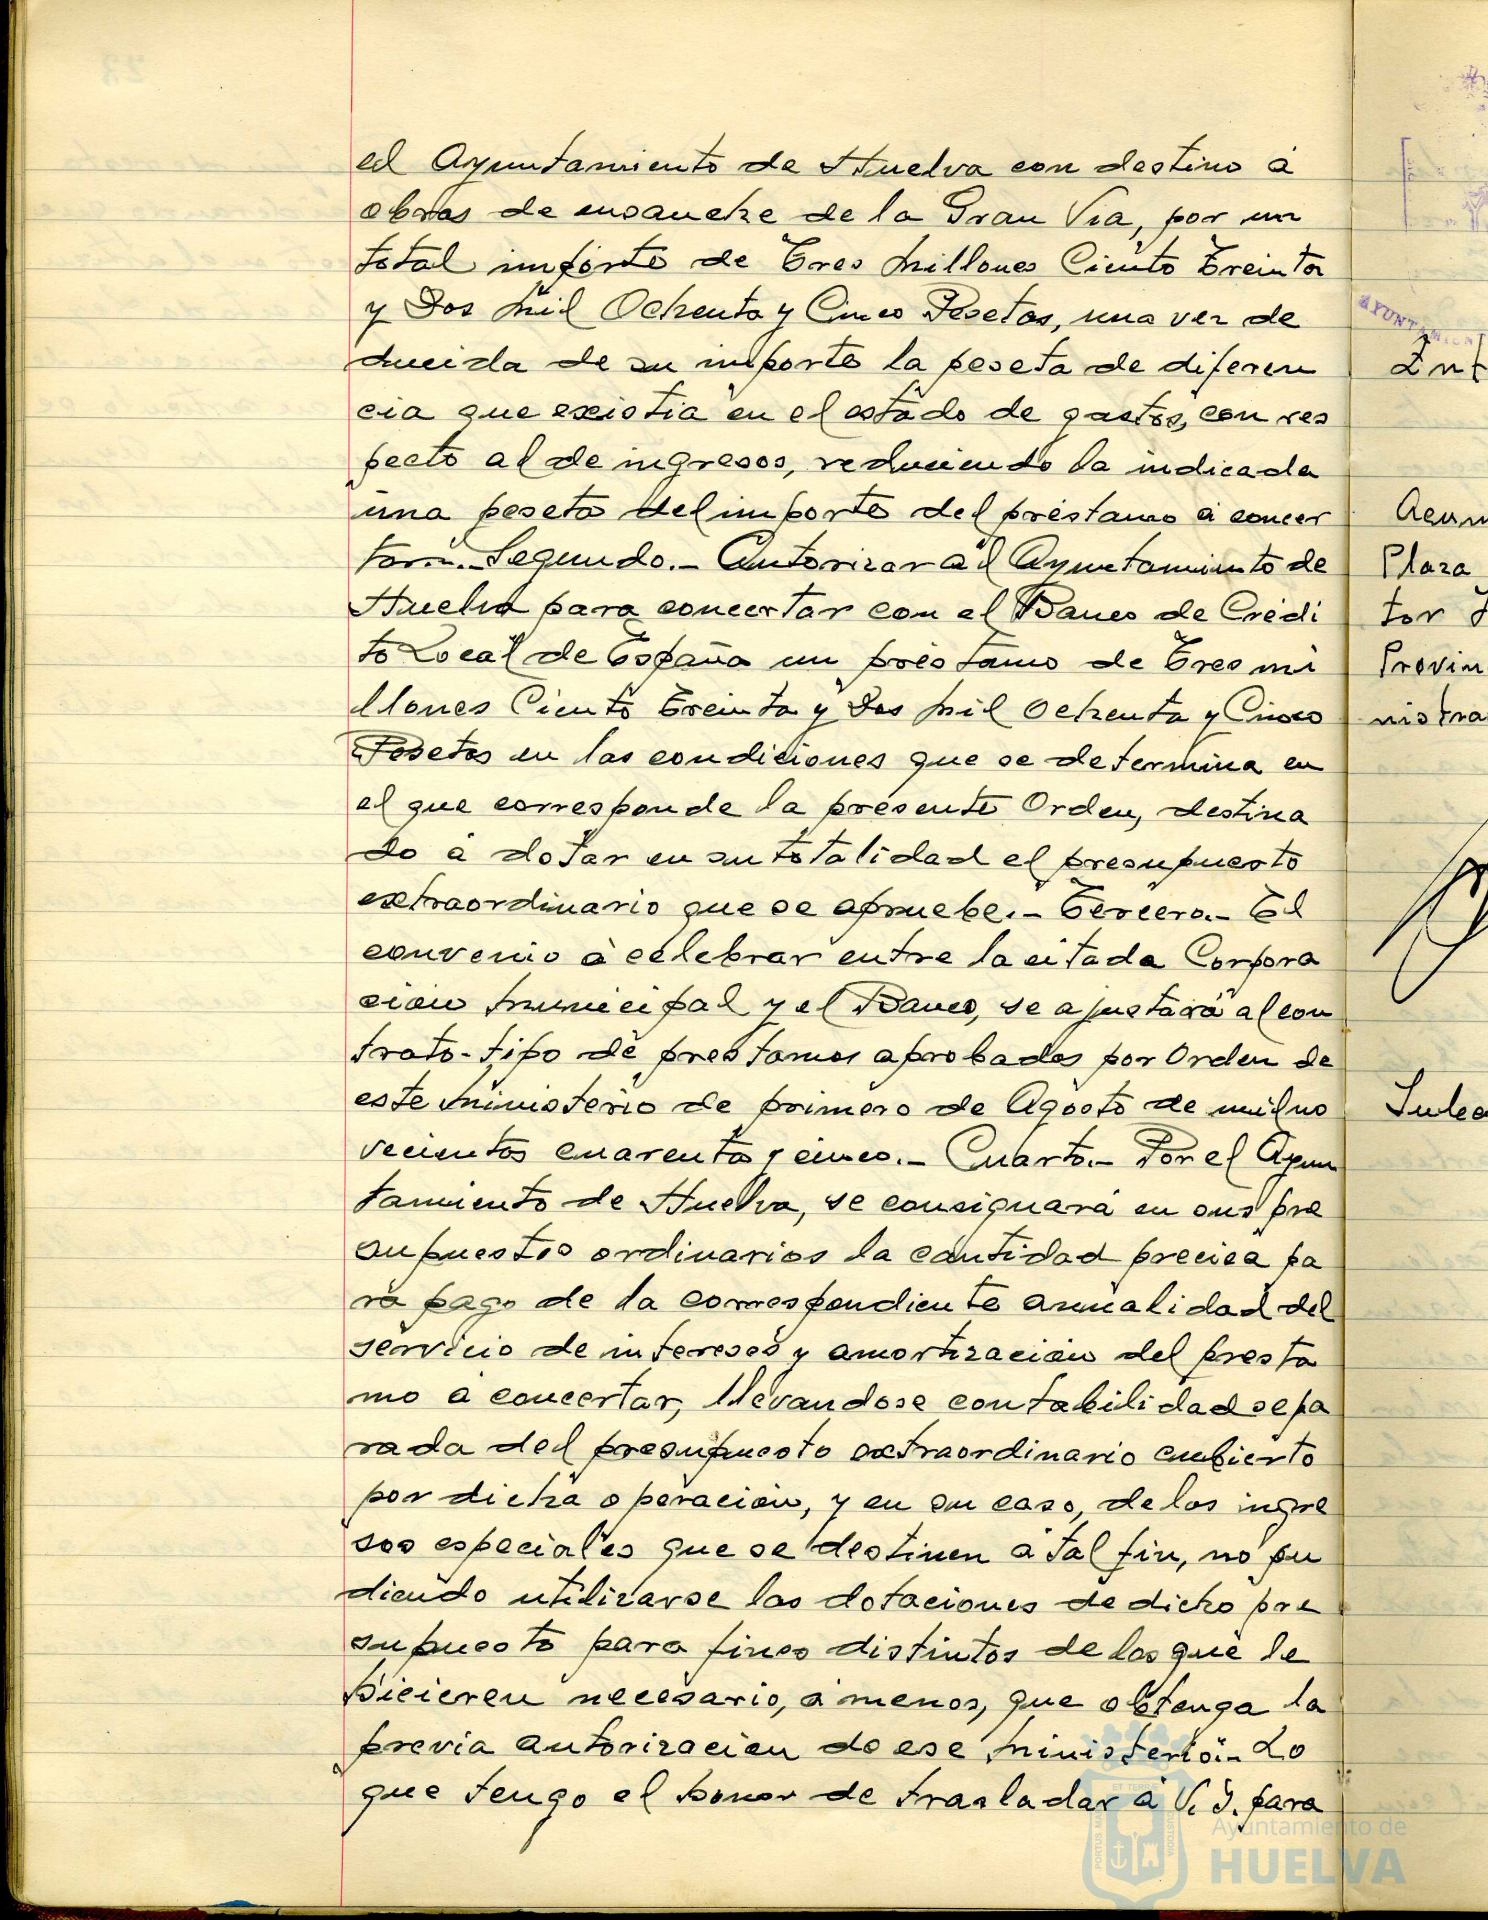 el Ayuntamiento de Huelva con destino á
obras de ensanche de la Gran Via, por un
total importe de Tres Millones Ciento Treinta
y Dos Mil Ochenta y Cinco Pesetas, una vez de
ducida de su importe la peseta de diferen
cia que existia en el estado de gastos, con res
pecto al de ingresos, reduciendo la indicada
una peseta del importe del préstamo á concer
tar.- Segundo.- Autorizar al Ayuntamiento de
Huelva para concertar con el Banco de Crédi
to Local de España un préstamo de Tres mi
llones Ciento Treinta y Dos Mil Ochenta y Cinco
Pesetas en las condiciones que se determina en
el que corresponde la presente Orden, destina
do á dotar en su totalidad el presupuesto
extraordinario que se apruebe.- Tercero.- El
convenio á celebrar entre la citada Corpora
ción Municipal y el Banco, se ajustará al con
trato-tipo de prestamos aprobados por Orden de
este Ministerio de primero de Agosto de mil no
vecientos cuarenta y cinco.- Cuarto.- Por el Ayun
tamiento de Huelva, se consignará en sus pre
supuestos ordinarios la cantidad precisa pa
ra pago de la correspondiente anualidad del
servicio de intereses y amortización del presta
mo á concertar, llevandose contabilidad sepa
rada del presupuesto extraordinario cubierto
por dicha operación, y en su caso, de los ingre
sos especiales que se destinen á tal fin, no pu
diendo utilizarse las dotaciones de dicho pre
supuesto para fines distintos de los que le
hicieren necesario, á menos, que obtenga la
previa autorizacion de ese Ministerio.- Lo
que tengo el honor de trasladar á V. I. para
AYUNTAMIEN
Plaza
tor
Provin
nistra
ET TERRE
PORTUS MA
CUSTODIA
Ayuntamiento de
HUELVA